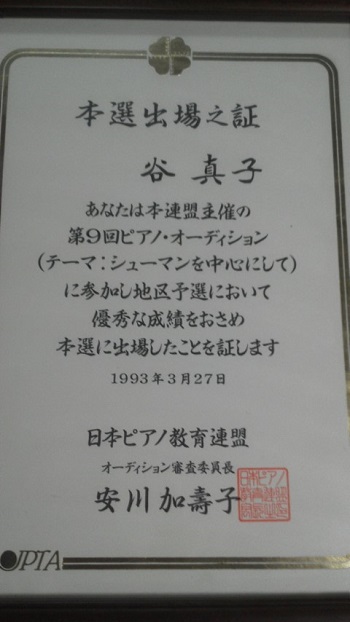 本選出場之証
谷 真子
あなたは本連盟主催の
第9回ピアノ・オーディション
(テーマ:シューマンを中心にして)
に参加し地区予選において
優秀な成績をおさめ
本選に出場したことを証します
1993年3月27日
日本ピアノ教育連盟
オーディション審査委員長
安川加壽子
JPTA